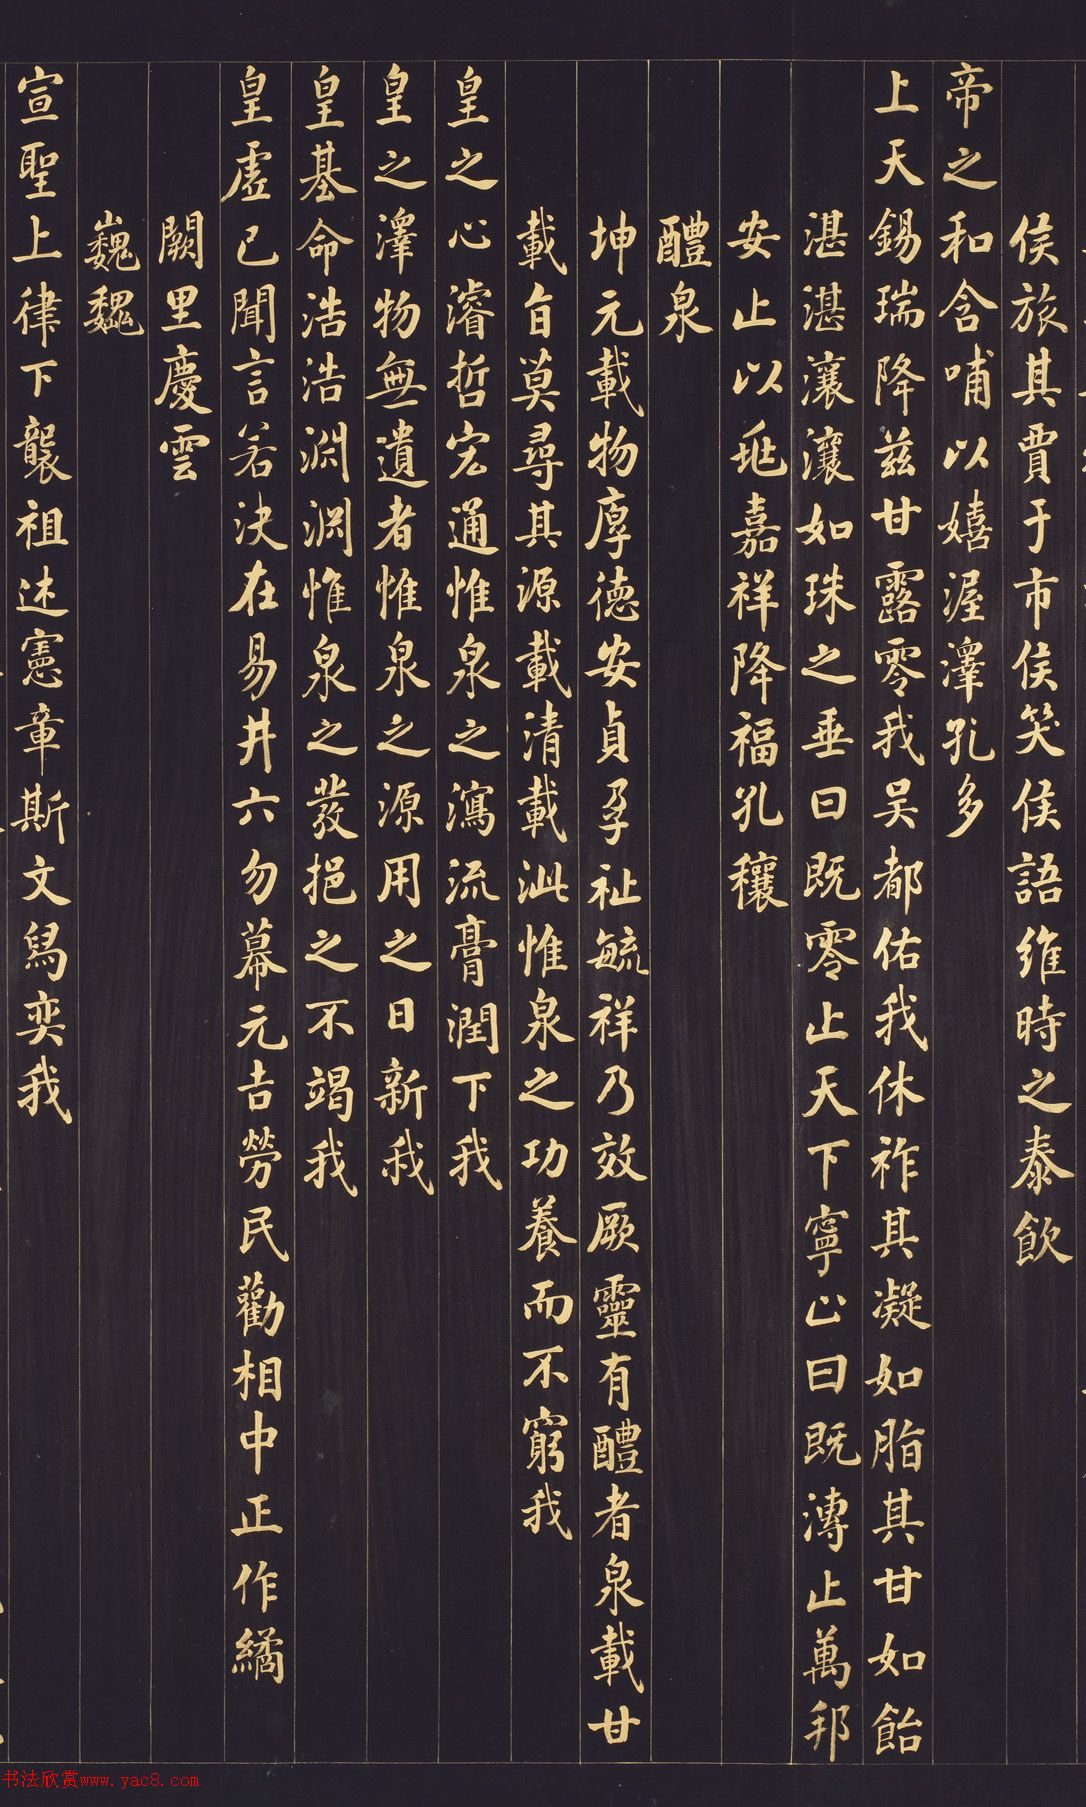 侯旅其賈于市侯笑侯語維時之泰飲
帝之和含哺以嬉渥澤孔多
上天錫瑞降茲甘露零我吴都佑我休祚其凝如脂其甘如飴
湛湛瀼瀼如珠之垂曰既零止天下寧止曰既漙止萬邦
安止以呧嘉祥降福孔穰
醴泉
坤元載物厚德安貞孕祉毓祥乃效厥靈有醴者泉載甘
載旨莫尋其源載清載泚惟泉之功養而不窮我
皇之心濬哲宏通惟泉之瀉流膏潤下我
皇之澤物無遺者惟泉之源用之日新我
皇基命浩浩淵淵惟泉之發挹之不竭我
皇虛己聞言若決在易井六勿幕元吉勞民勸相中正作繘
闕里慶雲
巍巍
宣聖上律下襲祖述憲章斯文舄奕我
书法欣赏www.yac8.com